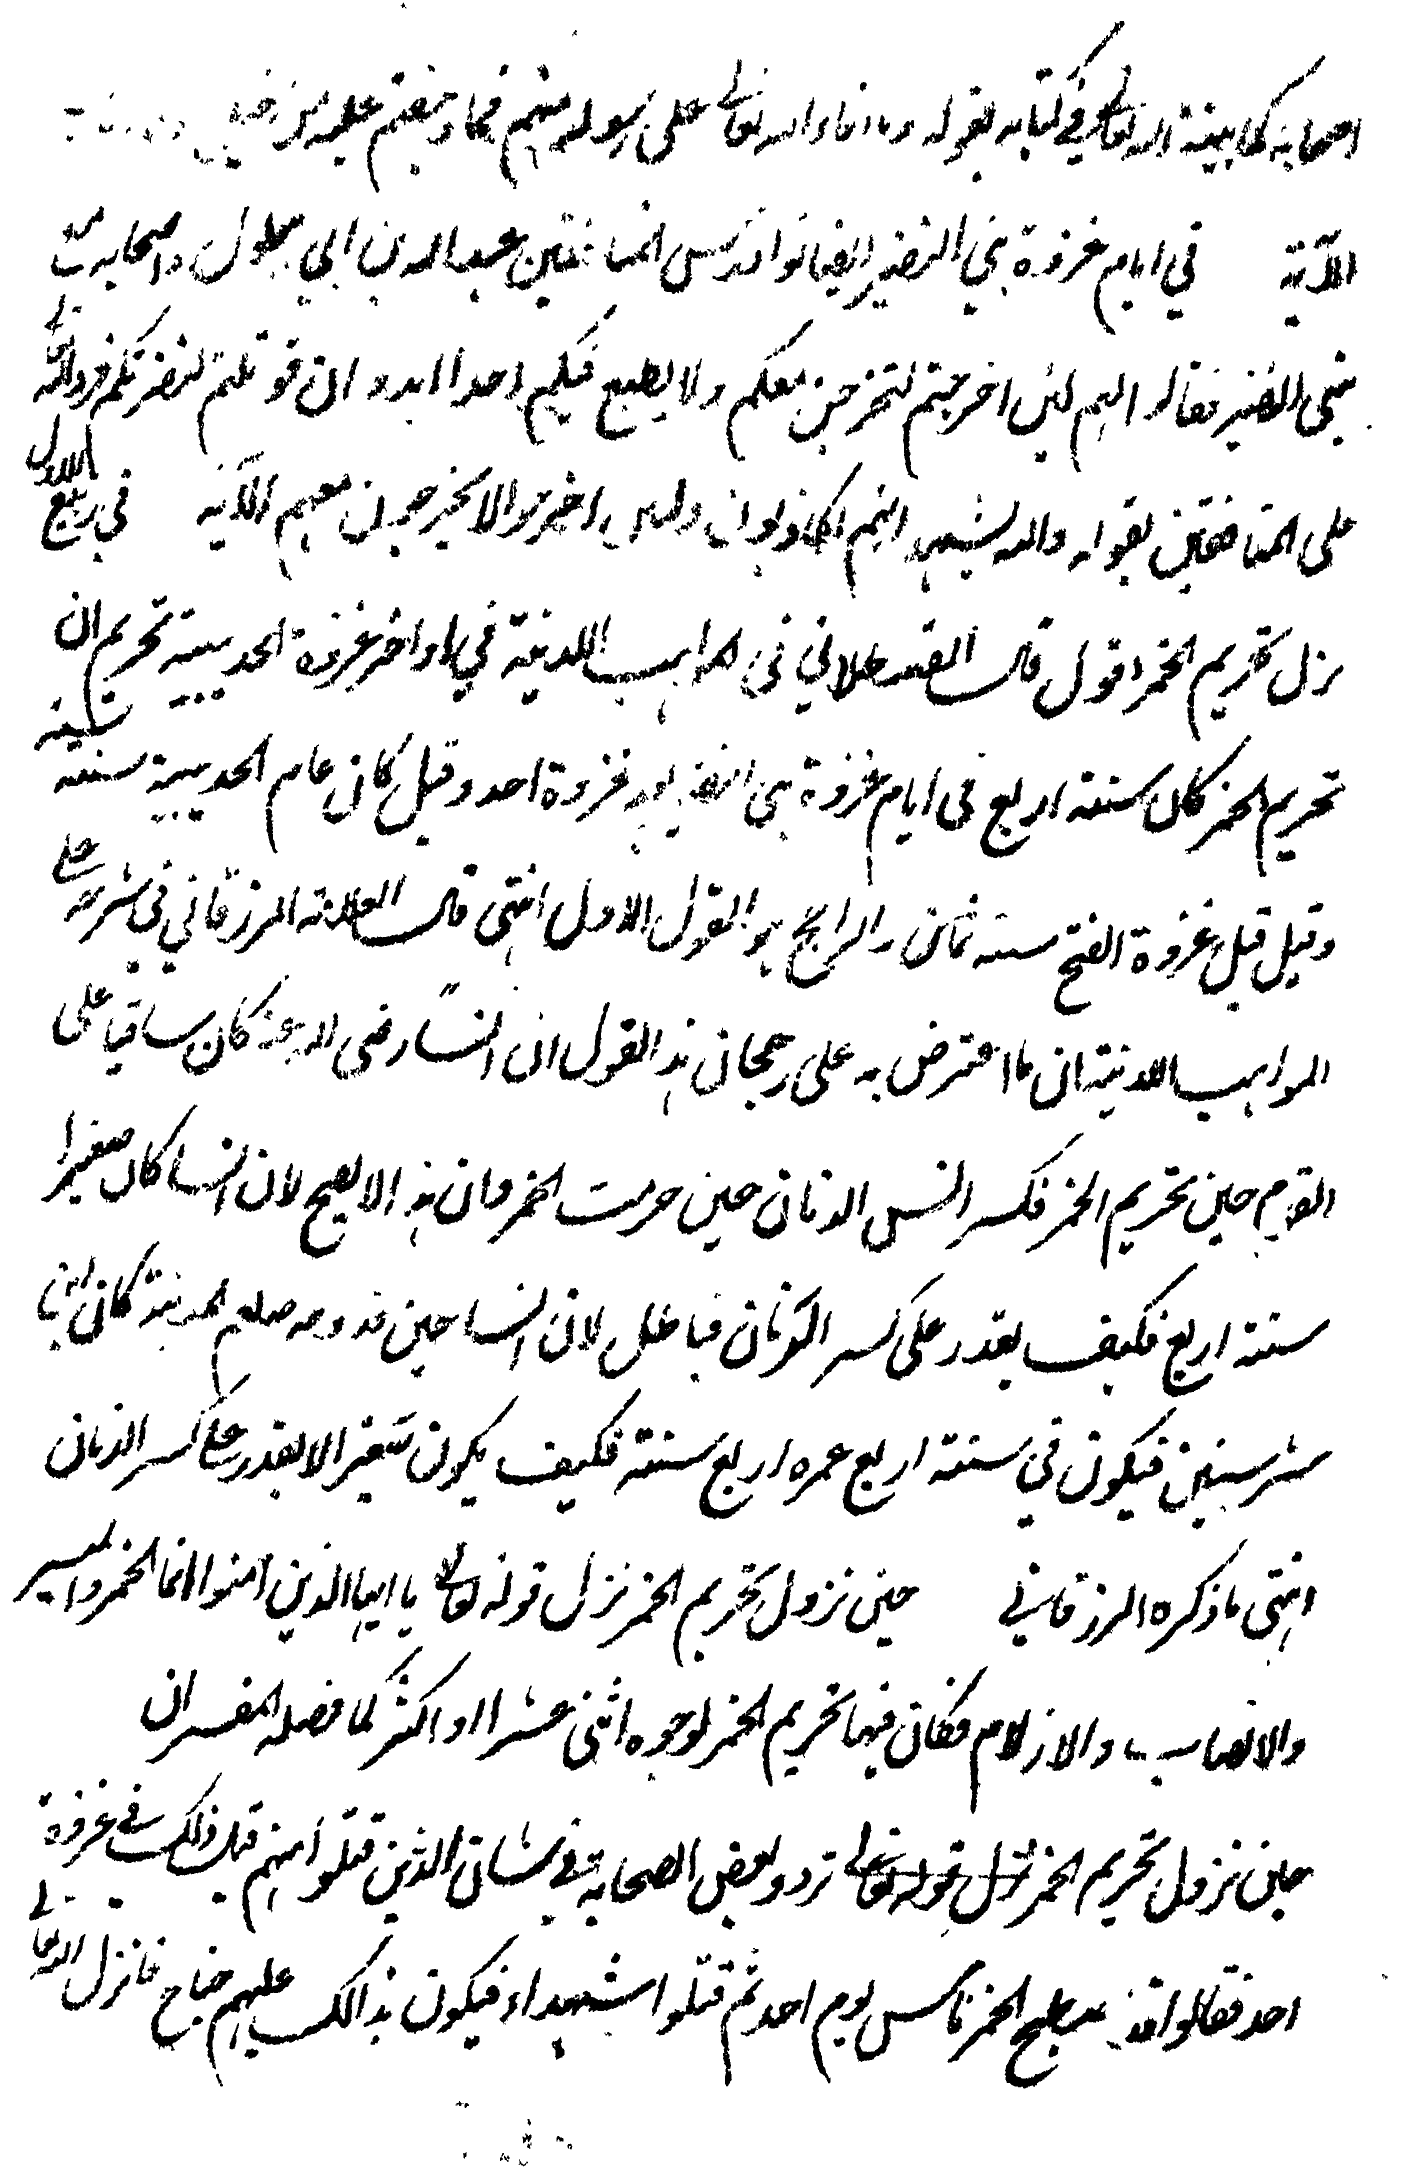 اصحابه كما بينه الله تعالى في كتابه بقوله وما افاء الله تعالى على رسوله منهم فما اوجفتم عليه من خيل
الآية في ايام غزوة بني النضير ايضا نوافق المنافقين عبد الله بن ابي سلول واصحابه مع
بني النضير فقالوا اليهم لئن اخرجتم لنخرجن معكم ولا يطيع فيكم احدا ابدا وان قوتلتم لننصرنكم فرد الله تعالى
على المنافقين بقوله والله يشهد انهم لكاذبون ولئن اخرجوا لا يخرجون معهم الآية في ربيع الاول
نزل تحريم الخمر اقول قال القسطلاني في المواهب اللدنية في اواخر غزوة الحديبية تحريم ان
تحريم الخمر كان سنة اربع في ايام غزوة بني النضير بعد غزوة احد وقيل كان عام الحديبية سنة ستة
وقيل قبل غزوة الفتح سنة ثمان والراجح هو القول الاول انتهى قال العلامة الزرقاني في شرحه على
المواهب اللدنية ان ما اعترض به على رجحان هذا القول ان انسا رضى الله عنه كان ساقيا على
القوم حين تحريم الخمر فكسر انس الدنان حين حرمت الخمر وان هذا لا يصح لان انسا كان صغيرا
سنة اربع فكيف يقدر على كسر الدنان فباطل لان انسا حين قدومه صلعم المدينة كان ابن
عشر سنين فيكون في سنة اربع عمره اربع سنة فكيف يكون صغيرا لا يقدر على كسر الدنان
انتهى ما ذكره الزرقاني حين نزول تحريم الخمر نزل قوله تعالى يا ايها الذين امنوا انما الخمر والميسر
والانصاب والازلام فكان فيها تحريم الخمر لوجوه اثنى عشر او اكثر كما فصله المفسران
حين نزول تحريم الخمر نزل قوله تعالى تردد بعض الصحابة في شان الذين قتلوا منهم قبل ذلك في غزوة
احد فقالوا قد صبح الخمر ناس يوم احد ثم قتلوا شهداء فيكون بذالك عليهم جناح فانزل الله تعالى